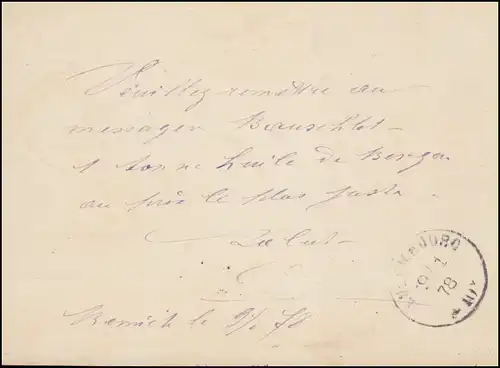 Veuillez remettre au
messager Bauschlet
1 tonne huile de Bergen
au prix le plus juste.
Salut.
Remich le 9/1 78
LUXEMBOURG
9/1
78